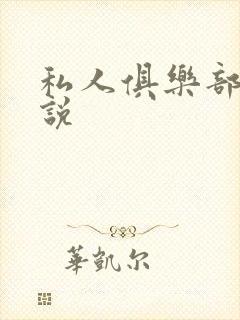 私人俱樂部
說
華凱尔